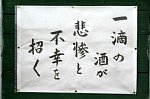 一滴の
酒が
悲惨と
不幸を
招く